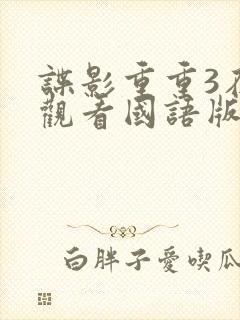 諜影重重3在
觀看國語版
白胖子愛喫瓜